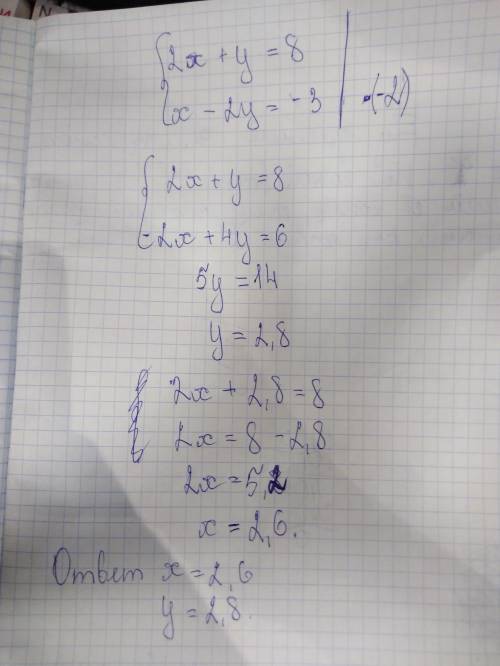 2x + y = 8
x - 2y = -3 | ·(-2)
2x + y = 8
-2x + 4y = 6
5y = 14
y = 2,8
2x + 2,8 = 8
2x = 8 - 2,8
2x = 5,2
x = 2,6.
Ответ x = 2,6
y = 2,8.